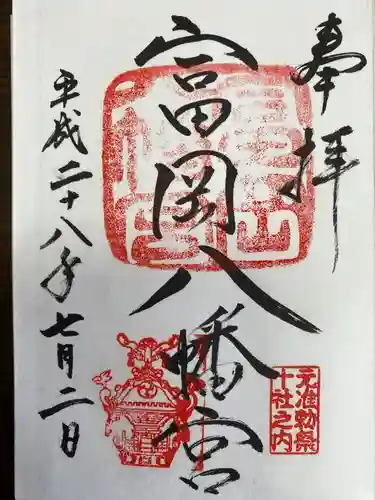 奉拝
富岡八幡宮
平成二十八年七月二日
元准勅祭
十社之内